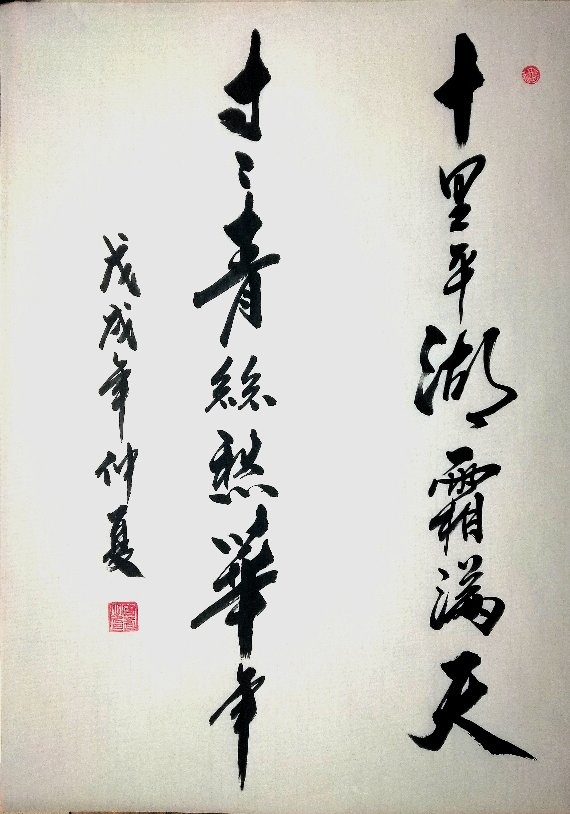 十里平湖霜满天
寸〻青絲愁華年
戊戌年仲夏